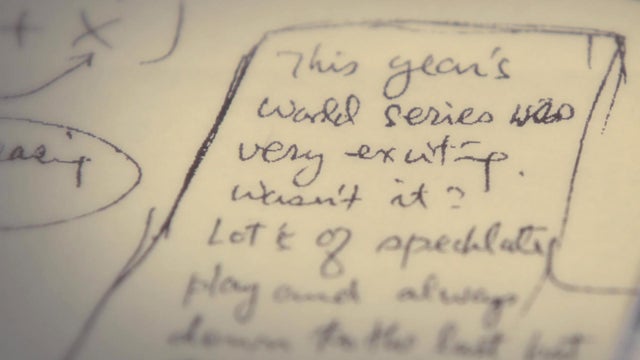 + x )
This year's
world series was
very exciting.
wasn't it?
Lots of speculate
play and always
down to the last